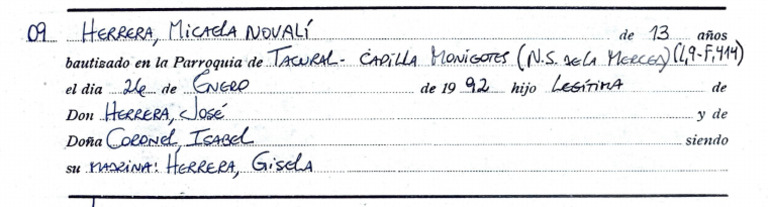 09 HERRERA, MICAELA NOVALÍ de 13 años
bautizado en la Parroquia de TACURAL - CAPILLA MONIGOTES (N.S. DE LA MERCED) (L,9-F,414)
el dia 26 de ENERO de 19 92 hijo LEGÍTIMA de
Don HERRERA, JOSÉ y de
Doña CORONEL, ISABEL siendo
su MADRINA: HERRERA, GISELA